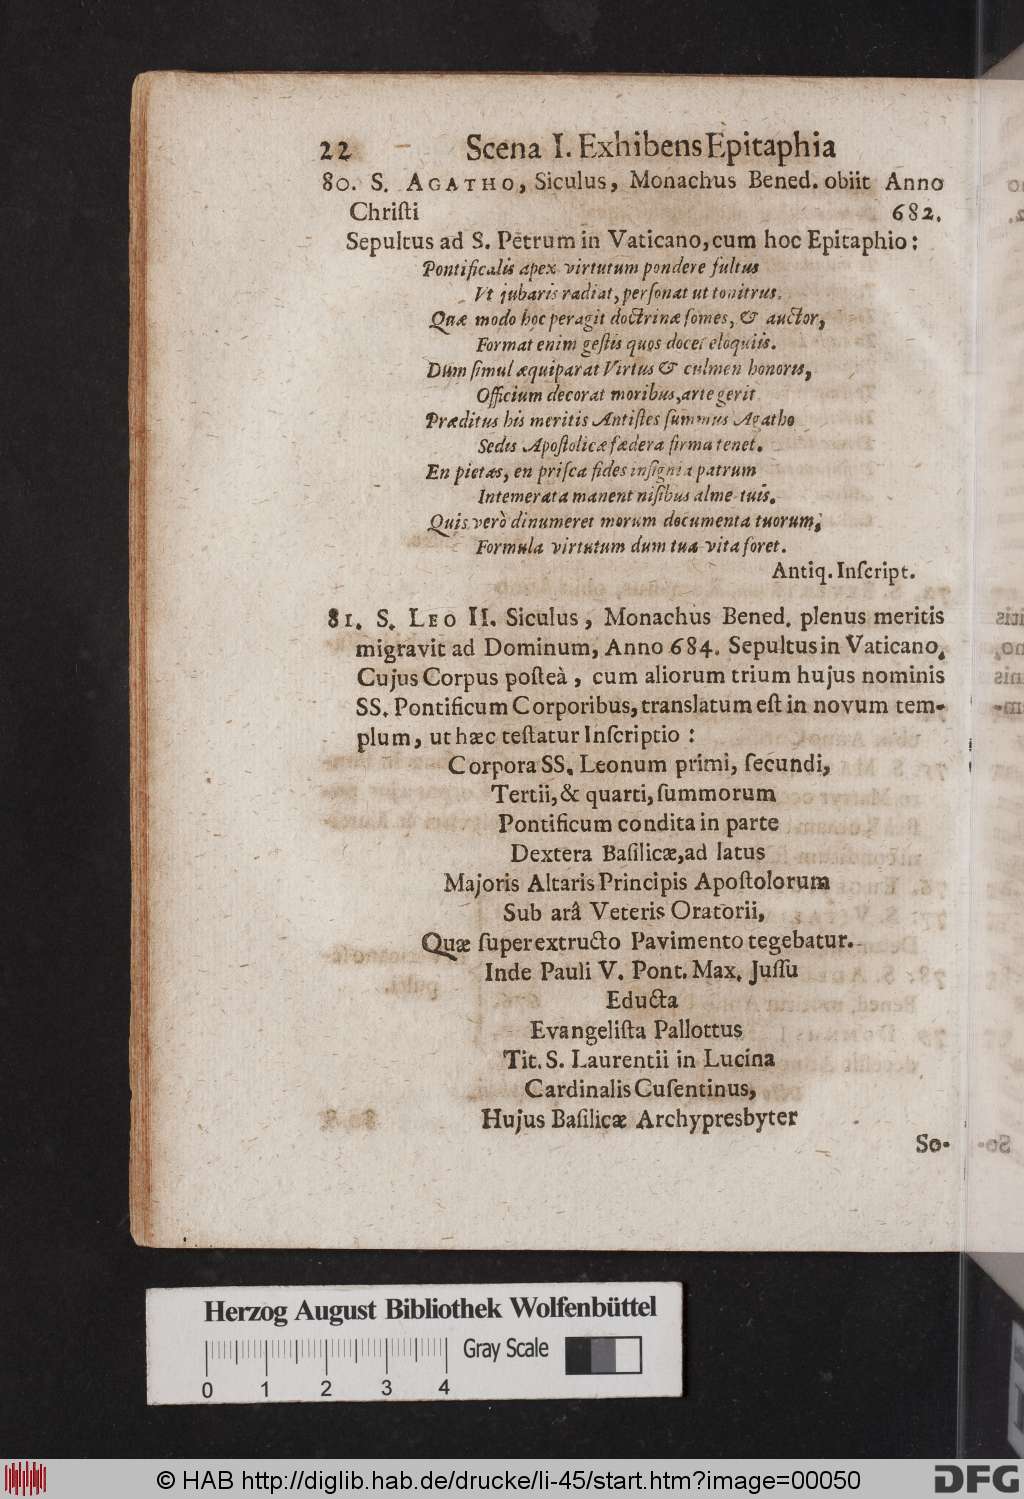 22 Scena I. Exhibens Epitaphia
80. S. AGATHO, Siculus, Monachus Bened. obiit Anno
Chriſti 682.
Sepultus ad S. Petrum in Vaticano, cum hoc Epitaphio:
Pontificalis apex virtutum pondere fultus
Ut jubaris radiat, perſonat ut tonitrus.
Quæ modo hoc peragit doctrinæ fomes, & auctor,
Format enim geſtis quos docet eloquiis.
Dum ſimul æquiparat Virtus & culmen honoris,
Officium decorat moribus, arte gerit
Præditus his meritis Antiſtes ſummus Agatho
Sedis Apoſtolicæ fædera firma tenet.
En pietas, en priſca fides inſignia patrum
Intemerata manent niſibus alme tuis.
Quis verò dinumeret morum documenta tuorum,
Formula virtutum dum tua vita foret.
Antiq. Inſcript.
81. S. LEO II. Siculus, Monachus Bened. plenus meritis
migravit ad Dominum, Anno 684. Sepultus in Vaticano,
Cujus Corpus poſteà, cum aliorum trium hujus nominis
SS. Pontificum Corporibus, translatum eſt in novum tem-
plum, ut hæc teſtatur Inſcriptio:
Corpora SS. Leonum primi, ſecundi,
Tertii, & quarti, ſummorum
Pontificum condita in parte
Dextera Baſilicæ, ad latus
Majoris Altaris Principis Apoſtolorum
Sub arâ Veteris Oratorii,
Quæ ſuperextructo Pavimento tegebatur.
Inde Pauli V. Pont. Max. Juſſu
Educta
Evangeliſta Pallottus
Tit. S. Laurentii in Lucina
Cardinalis Cuſentinus,
Hujus Baſilicæ Archypresbyter
So-
Herzog August Bibliothek Wolfenbüttel
Gray Scale
0 1 2 3 4
© HAB http://diglib.hab.de/drucke/li-45/start.htm?image=00050
DFG